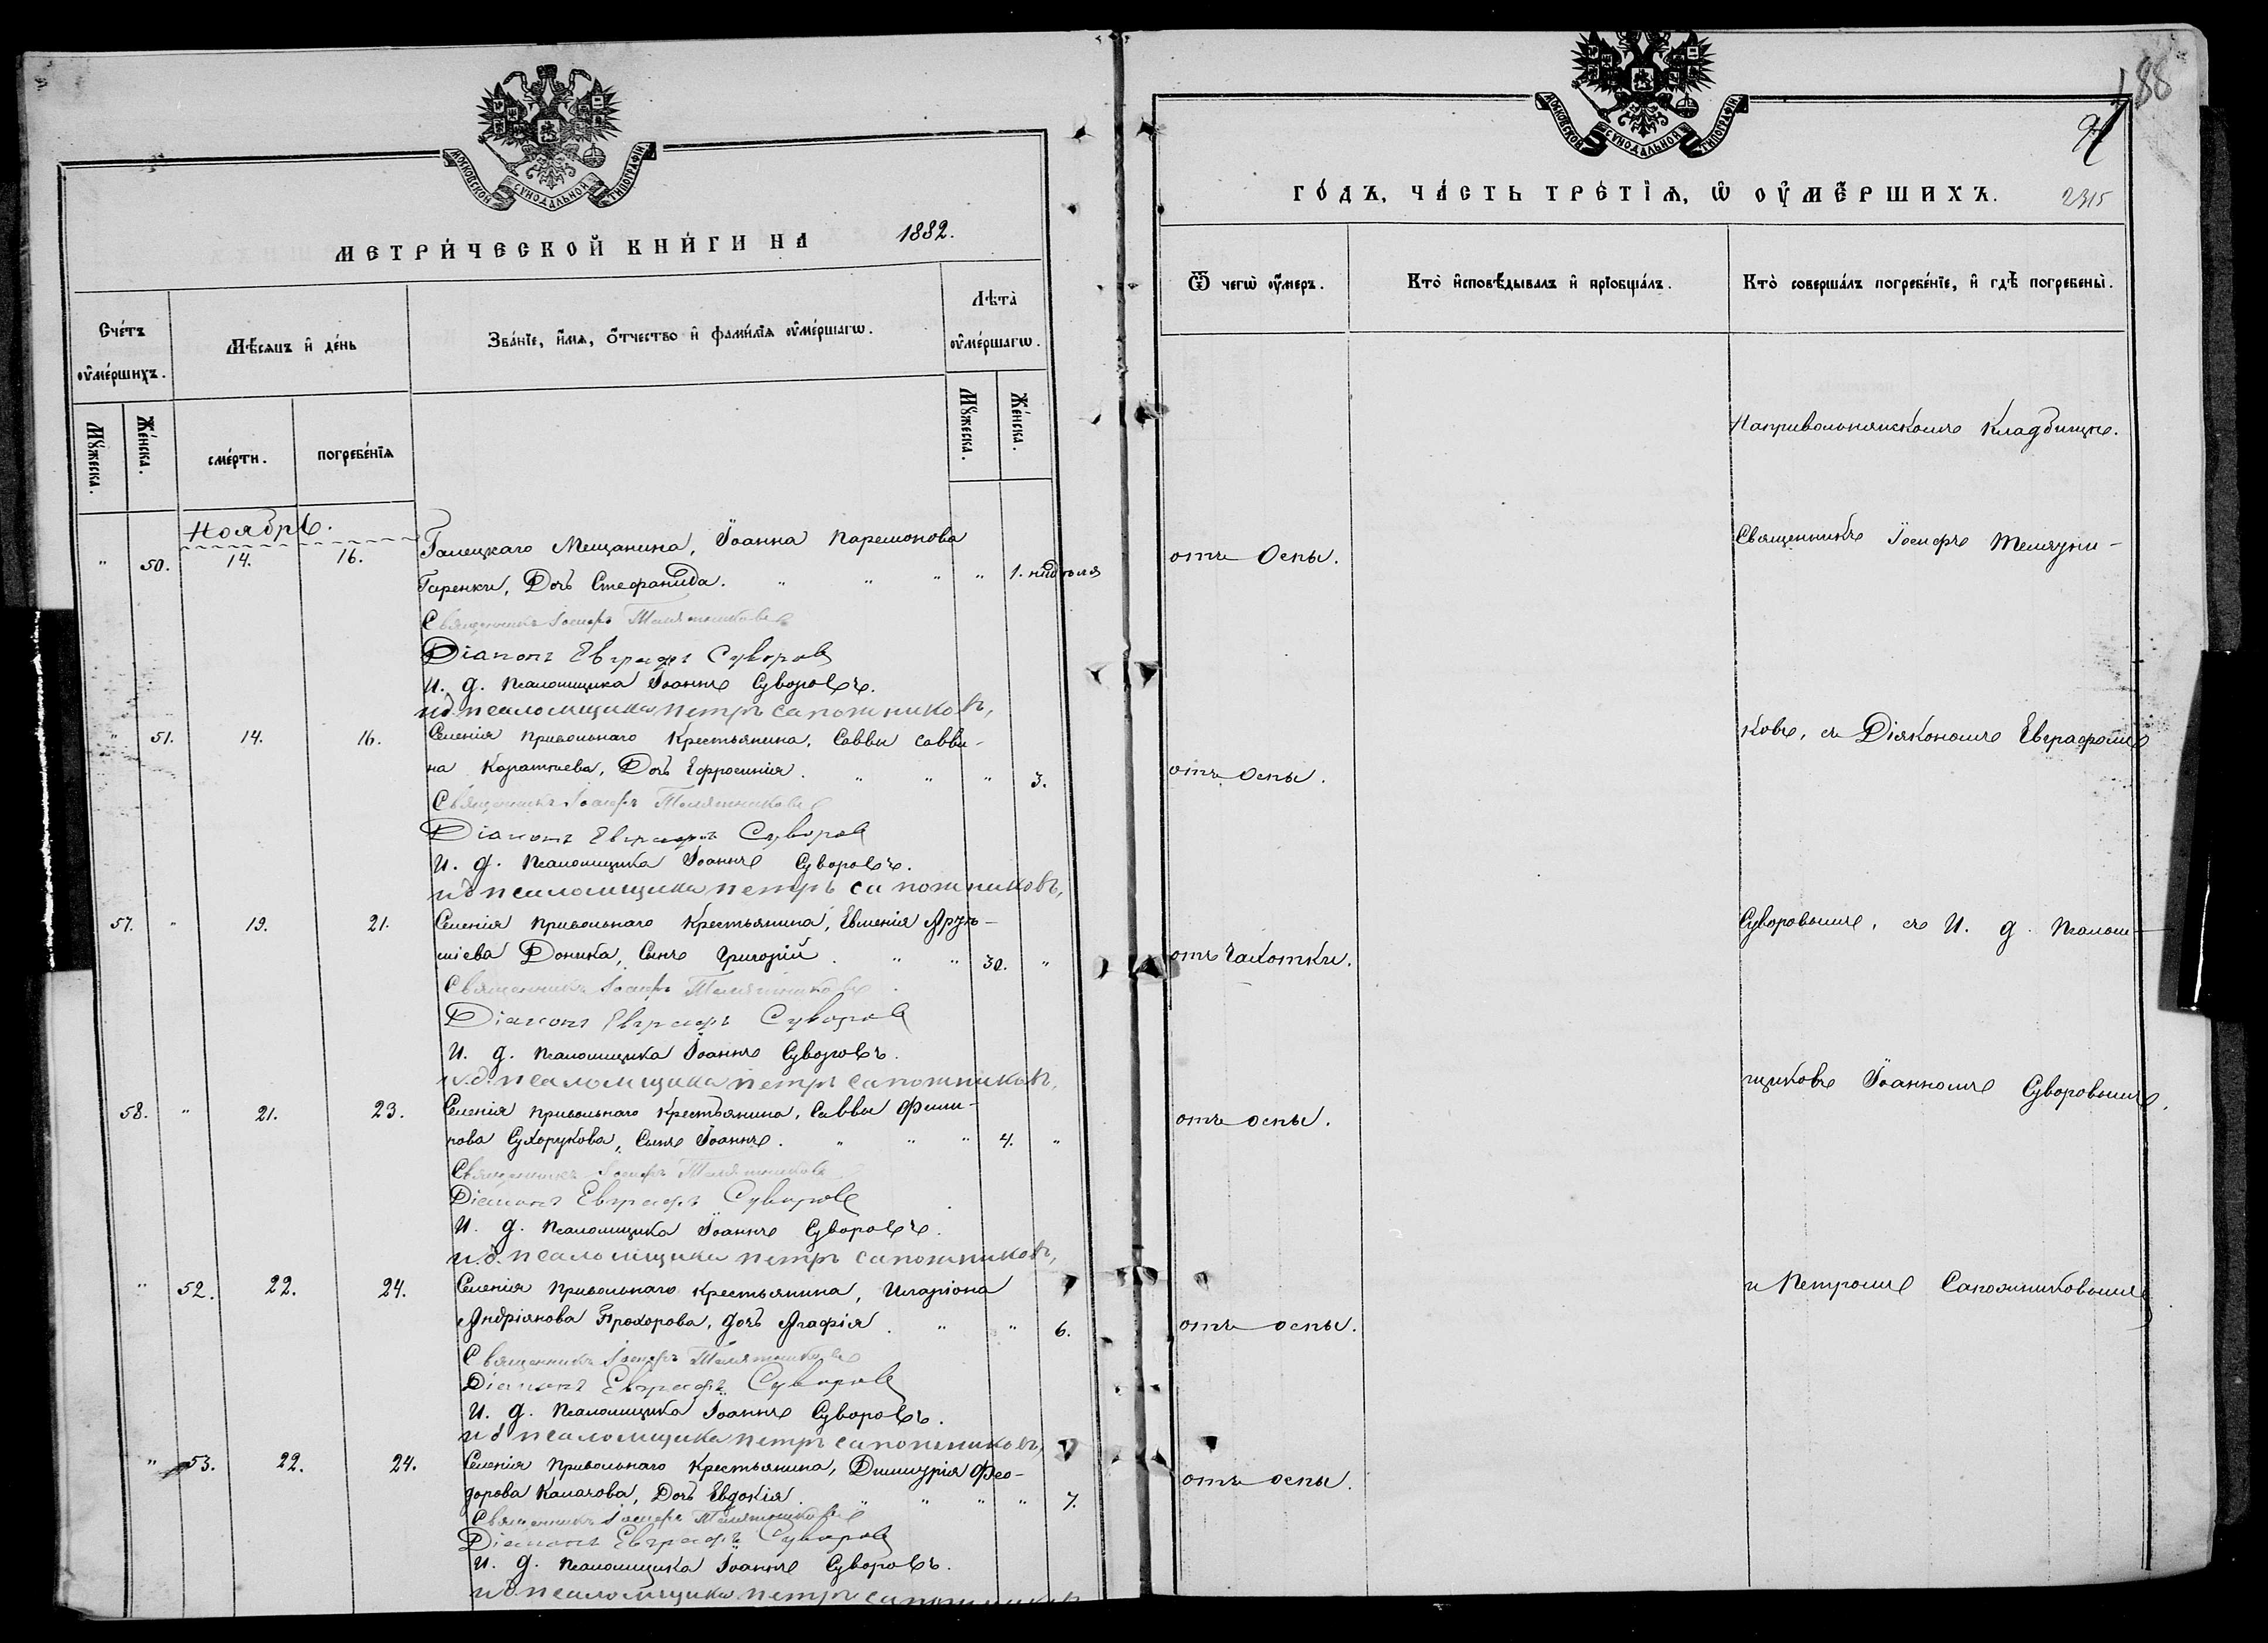 МОСКОВСКОЙ СУНОДАЛЬНОЙ ТИПОГРАФІИ
МЕТРИ́ЧЕСКОЙ КНИ́ГИ НА 1882.
Сче́тъ ᲂу҆ме́ршихъ.
Мѣ́сяцъ и҆ де́нь
Зва́нїе, и҆́мѧ, ѻ҆́тчество и҆ фамѝлїѧ ᲂу҆ме́ршагѡ.
Лѣта̀ ᲂу҆ме́ршагѡ.
Мꙋ́жеска.
Же́нска.
сме́рти.
погребе́нїѧ
Мꙋ́жеска.
Же́нска.
Ноябрь.
" 50. 14. 16. Галецкаго Мещанина, Іоанна Парамонова
Гаренки, Дочь Стефанида. " " " " 1. недѣля
Священникъ Іосифъ Телятниковъ
Діаконъ Евграфъ Суворовъ
И. д. псаломщика Іоаннъ Суворовъ.
и д псаломщика петръ сапожниковъ,
" 51. 14. 16. Селенія Привольнаго Крестьянина, Саввы Савви-
на Коратаева, Дочь Ефросинія. " " " 3.
Священникъ Іосифъ Телятниковъ
Діаконъ Евграфъ Суворовъ
И. д. псаломщика Іоаннъ Суворовъ.
и д псаломщика петръ сапожниковъ,
57. " 19. 21. Селенія Привольнаго Крестьянина, Евменія
Доника, Сынъ Григорій. " " 30. "
Священникъ Іосифъ Телятниковъ.
Діаконъ Евграфъ Суворовъ
И. д. псаломщика Іоаннъ Суворовъ.
и.д. псаломщика петръ сапожниковъ,
58. " 21. 23. Селенія Привольнаго Крестьянина, Саввы
Сухорукова, Сынъ Іоаннъ. " " " 4. "
Священникъ Іосифъ Телятниковъ
Діаконъ Евграфъ Суворовъ
И. д. псаломщика Іоаннъ Суворовъ.
и.д. псаломщика петръ сапожниковъ,
" 52. 22. 24. Селенія Привольнаго Крестьянина, Иларіона
Андріянова Прохорова, дочь Агафія. " " 6.
Священникъ Іосифъ Телятниковъ
Діаконъ Евграфъ Суворовъ
И. д. псаломщика Іоаннъ Суворовъ.
и д псаломщика петръ сапожниковъ,
" 53. 22. 24. Селенія Привольнаго Крестьянина, Димитрія Фео-
дорова Калачова, Дочь Евдокія. " " " " 7.
Священникъ Іосифъ Телятниковъ
Діаконъ Евграфъ Суворовъ
И. д. псаломщика Іоаннъ Суворовъ.
и д псаломщика петръ сапожниковъ
188
МОСКОВСКОЙ СУНОДАЛЬНОЙ ТИПОГРАФІИ
ГО́ДЪ, ЧА́СТЬ ТРЕ́ТЇѦ, Ѡ ОУ҆МЕ́РШИХЪ. 2315
Ѿ чегѡ̀ ᲂу҆́меръ.
Кто̀ и҆сповѣ́дывалъ и҆ прїобща́лъ.
Кто̀ соверша́лъ погребе́нїе, и҆ гдѣ̀ погребены̀.
На привольнянскомъ Кладбищѣ.
отъ Оспы.
Священникъ Іосифъ Телятни-
отъ Оспы.
ковъ, съ Діякономъ Евграфомъ
отъ Чахотки.
Суворовымъ, съ И. д. псалом-
отъ оспы.
щиковъ Іоанномъ Суворовымъ,
отъ оспы.
и Петромъ Сапожниковымъ
отъ оспы.